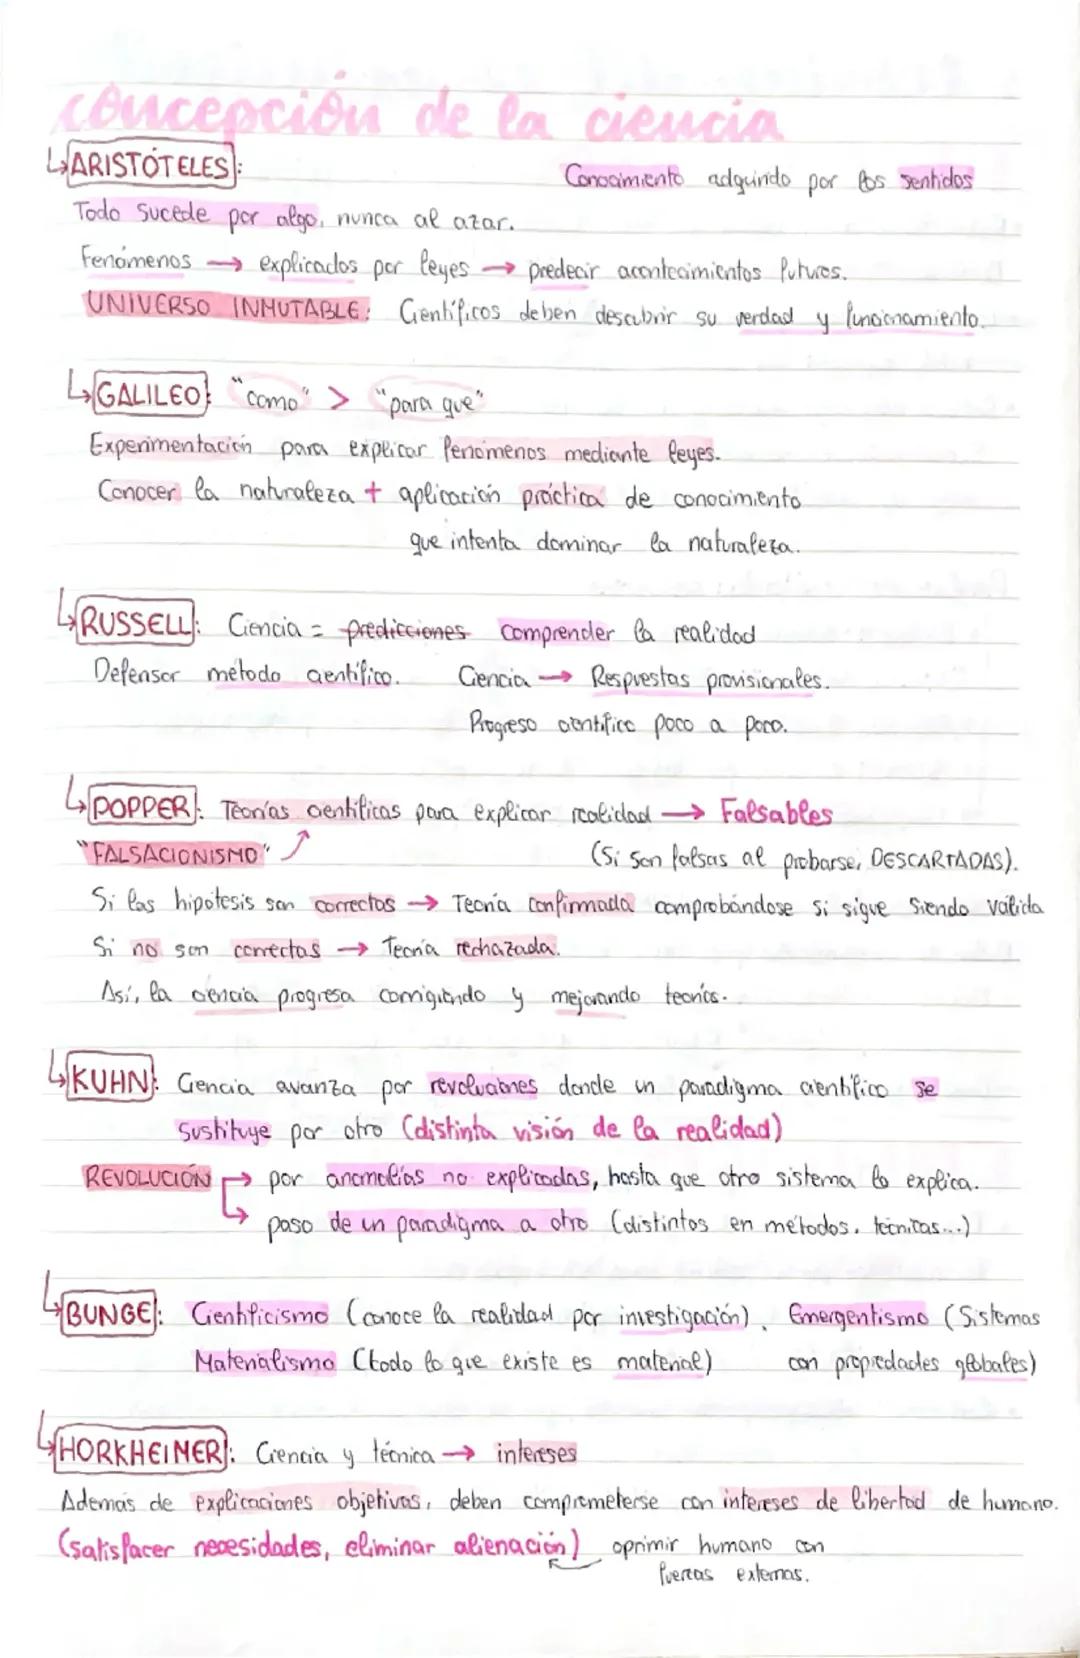 concepción de la ciencia
↳ARISTÓTELES:
Conocimiento adquirido por los sentidos
Todo sucede por algo, nunca al azar.
Fenómenos → explicados por leyes → predecir acontecimientos futuros.
UNIVERSO INMUTABLE: Científicos deben descubrir su verdad y funcionamiento.
↳GALILEO: "como" > "para que"
Experimentación para explicar fenómenos mediante leyes.
Conocer la naturaleza + aplicación práctica de conocimiento
que intenta dominar la naturaleza.
↳RUSSELL: Ciencia = predicciones comprender la realidad
Defensor método científico. Ciencia → Respuestas provisionales.
Progreso científico poco a poco.
↳POPPER: Teorías científicas para explicar realidad → Falsables
"FALSACIONISMO" (Si son falsas al probarse, DESCARTADAS).
Si las hipótesis son correctas → Teoría confirmada comprobándose si sigue siendo válida
Si no son correctas → Teoría rechazada.
Así, la ciencia progresa corrigiendo y mejorando teorías.
↳KUHN: Ciencia avanza por revoluciones donde un paradigma científico se
sustituye por otro (distinta visión de la realidad)
REVOLUCIÓN → por anomalías no explicadas, hasta que otro sistema lo explica.
↳ paso de un paradigma a otro (distintos en métodos, técnicas...)
↳BUNGE: Cientificismo (conoce la realidad por investigación). Emergentismo (Sistemas
Materialismo (todo lo que existe es material) con propiedades globales)
↳HORKHEIMER: Ciencia y técnica → intereses
Además de explicaciones objetivas, deben comprometerse con intereses de libertad de humano.
(satisfacer necesidades, eliminar alienación) oprimir humano con
fuerzas externas.